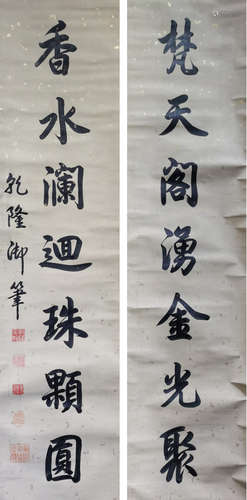 梵天阁湧金光聚
香水澜迴珠顆圓
乾隆御筆